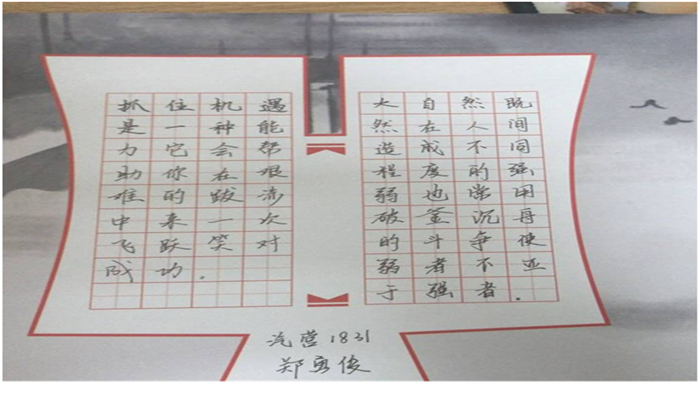 抓住机遇
是一种能
力它会帮
助你在艰
难的跋涉
中来一次
飞跃笑对
成功.
大自然既
然在人间
造成不同
程度的强
弱也常用
破釜沉舟
的斗争使
弱者不亚
于强者.
汽营1831
郑勇俊